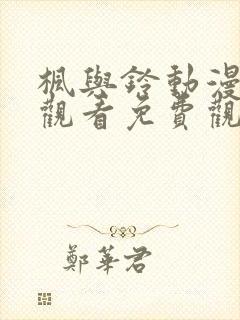 楓與鈴動漫
觀看免費觀
鄭華君